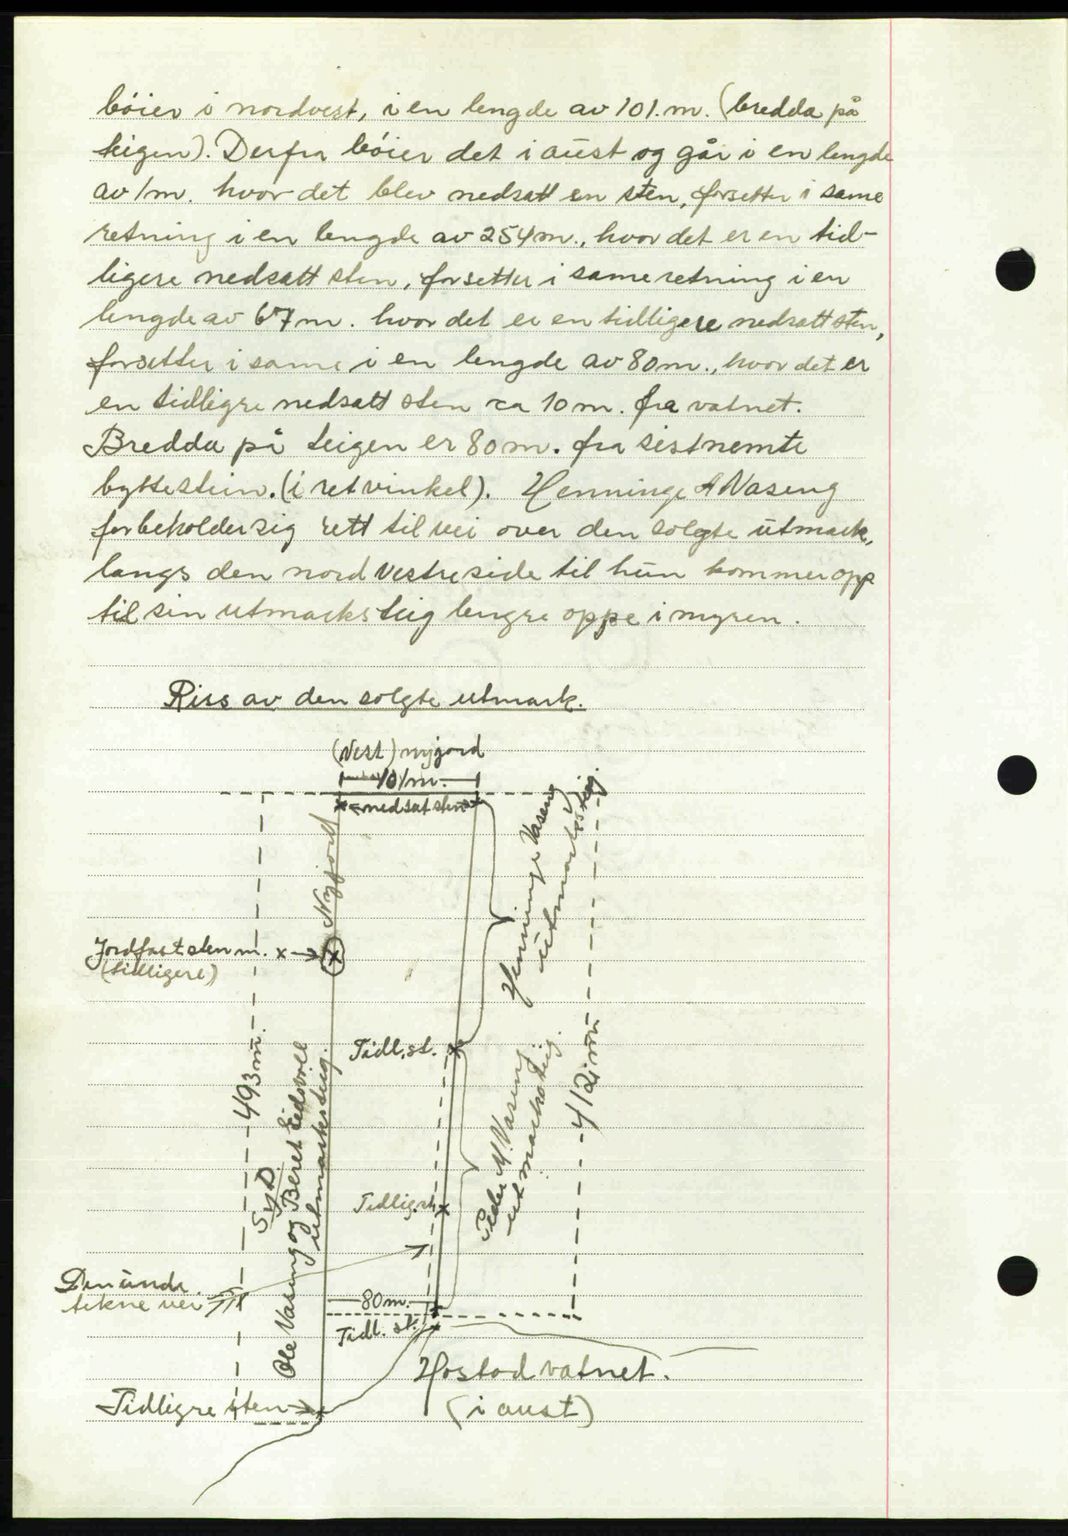 bøier i nordvest, i en lengde av 101.m. (bredda på
teigen). Derfra bøier det i aust og går i en lengde
av 1m. hvor det blev nedsatt en sten, forsetter i same
retning i en lengde av 254m., hvor det er en tid-
ligere nedsatt sten, forsetter i same retning i en
lengde av 67m. hvor det er en tidligere nedsatt sten,
forsetter i same i en lengde av 80m., hvor det er
en tidligre nedsatt sten ca 10m. fra vatnet.
Bredda på teigen er 80m. fra sistnemte
byttestein. (i ret vinkel). Henninge A Vaseng
forbeholder sig rett til vei over den solgte utmark,
langs den nordvestre side til hun kommer opp
til sin utmarksteig lengre oppe i myren.
Riss av den solgte utmark.
(Vest) nyjord
101m.
nedsat sten
Nyjord
Henninge Vaseng
utmarksteig
Jordfast sten m. x
(tidligere)
Tidl. st.
493m.
412m
Syd
Ole Vaseng og Beret Eidsvoll
utmarksteig.
Peder M. Vaseng
utmarksteig.
Tidlig st.
Den unde
tekne vei
80m.
Tidl. st.
Hostadvatnet.
(i aust)
Tidligre sten